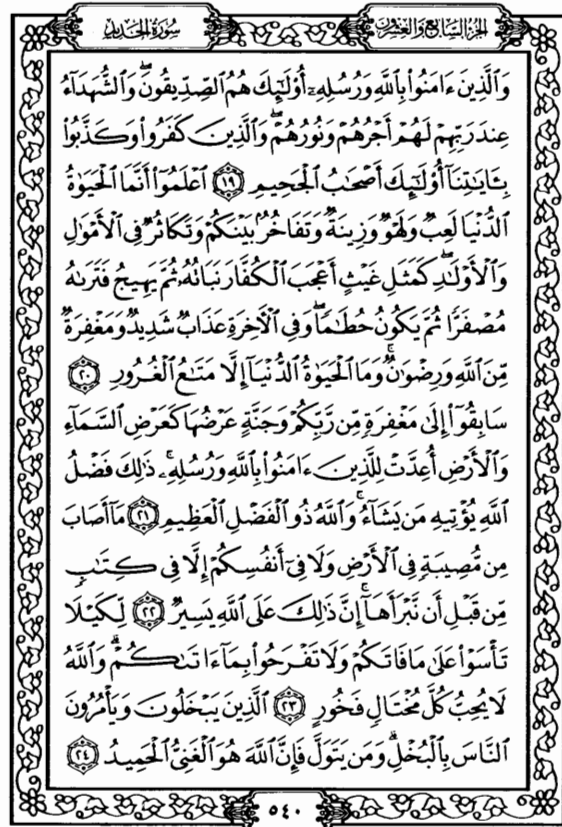 الجزء السابع والعشرون
سورة الحديد
وَٱلَّذِينَ ءَامَنُوا۟ بِٱللَّهِ وَرُسُلِهِۦٓ أُو۟لَٰٓئِكَ هُمُ ٱلصِّدِّيقُونَ ۖ وَٱلشُّهَدَآءُ
عِندَ رَبِّهِمْ لَهُمْ أَجْرُهُمْ وَنُورُهُمْ ۖ وَٱلَّذِينَ كَفَرُوا۟ وَكَذَّبُوا۟
بِـَٔايَٰتِنَآ أُو۟لَٰٓئِكَ أَصْحَٰبُ ٱلْجَحِيمِ ١٩ ٱعْلَمُوٓا۟ أَنَّمَا ٱلْحَيَوٰةُ
ٱلدُّنْيَا لَعِبٌ وَلَهْوٌ وَزِينَةٌ وَتَفَاخُرٌۢ بَيْنَكُمْ وَتَكَاثُرٌ فِى ٱلْأَمْوَٰلِ
وَٱلْأَوْلَٰدِ ۖ كَمَثَلِ غَيْثٍ أَعْجَبَ ٱلْكُفَّارَ نَبَاتُهُۥ ثُمَّ يَهِيجُ فَتَرَىٰهُ
مُصْفَرًّا ثُمَّ يَكُونُ حُطَٰمًا ۖ وَفِى ٱلْءَاخِرَةِ عَذَابٌ شَدِيدٌ وَمَغْفِرَةٌ
مِّنَ ٱللَّهِ وَرِضْوَٰنٌ ۚ وَمَا ٱلْحَيَوٰةُ ٱلدُّنْيَآ إِلَّا مَتَٰعُ ٱلْغُرُورِ ٢٠
سَابِقُوٓا۟ إِلَىٰ مَغْفِرَةٍ مِّن رَّبِّكُمْ وَجَنَّةٍ عَرْضُهَا كَعَرْضِ ٱلسَّمَآءِ
وَٱلْأَرْضِ أُعِدَّتْ لِلَّذِينَ ءَامَنُوا۟ بِٱللَّهِ وَرُسُلِهِۦ ۚ ذَٰلِكَ فَضْلُ
ٱللَّهِ يُؤْتِيهِ مَن يَشَآءُ ۚ وَٱللَّهُ ذُو ٱلْفَضْلِ ٱلْعَظِيمِ ٢١ مَآ أَصَابَ
مِن مُّصِيبَةٍ فِى ٱلْأَرْضِ وَلَا فِىٓ أَنفُسِكُمْ إِلَّا فِى كِتَٰبٍ
مِّن قَبْلِ أَن نَّبْرَأَهَآ ۚ إِنَّ ذَٰلِكَ عَلَى ٱللَّهِ يَسِيرٌ ٢٢ لِّكَيْلَا
تَأْسَوْا۟ عَلَىٰ مَا فَاتَكُمْ وَلَا تَفْرَحُوا۟ بِمَآ ءَاتَىٰكُمْ ۗ وَٱللَّهُ
لَا يُحِبُّ كُلَّ مُخْتَالٍ فَخُورٍ ٢٣ ٱلَّذِينَ يَبْخَلُونَ وَيَأْمُرُونَ
ٱلنَّاسَ بِٱلْبُخْلِ ۗ وَمَن يَتَوَلَّ فَإِنَّ ٱللَّهَ هُوَ ٱلْغَنِىُّ ٱلْحَمِيدُ ٢٤
٥٤٠